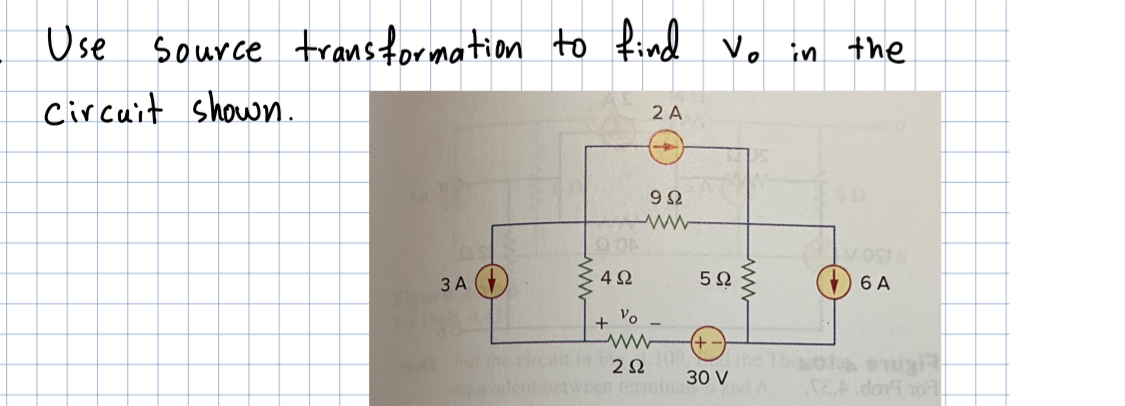 Use source transformation to find v₀ in the
circuit shown.
2 A
9 Ω
3 A
4 Ω
5 Ω
6 A
+ v₀ −
+ −
2 Ω
30 V